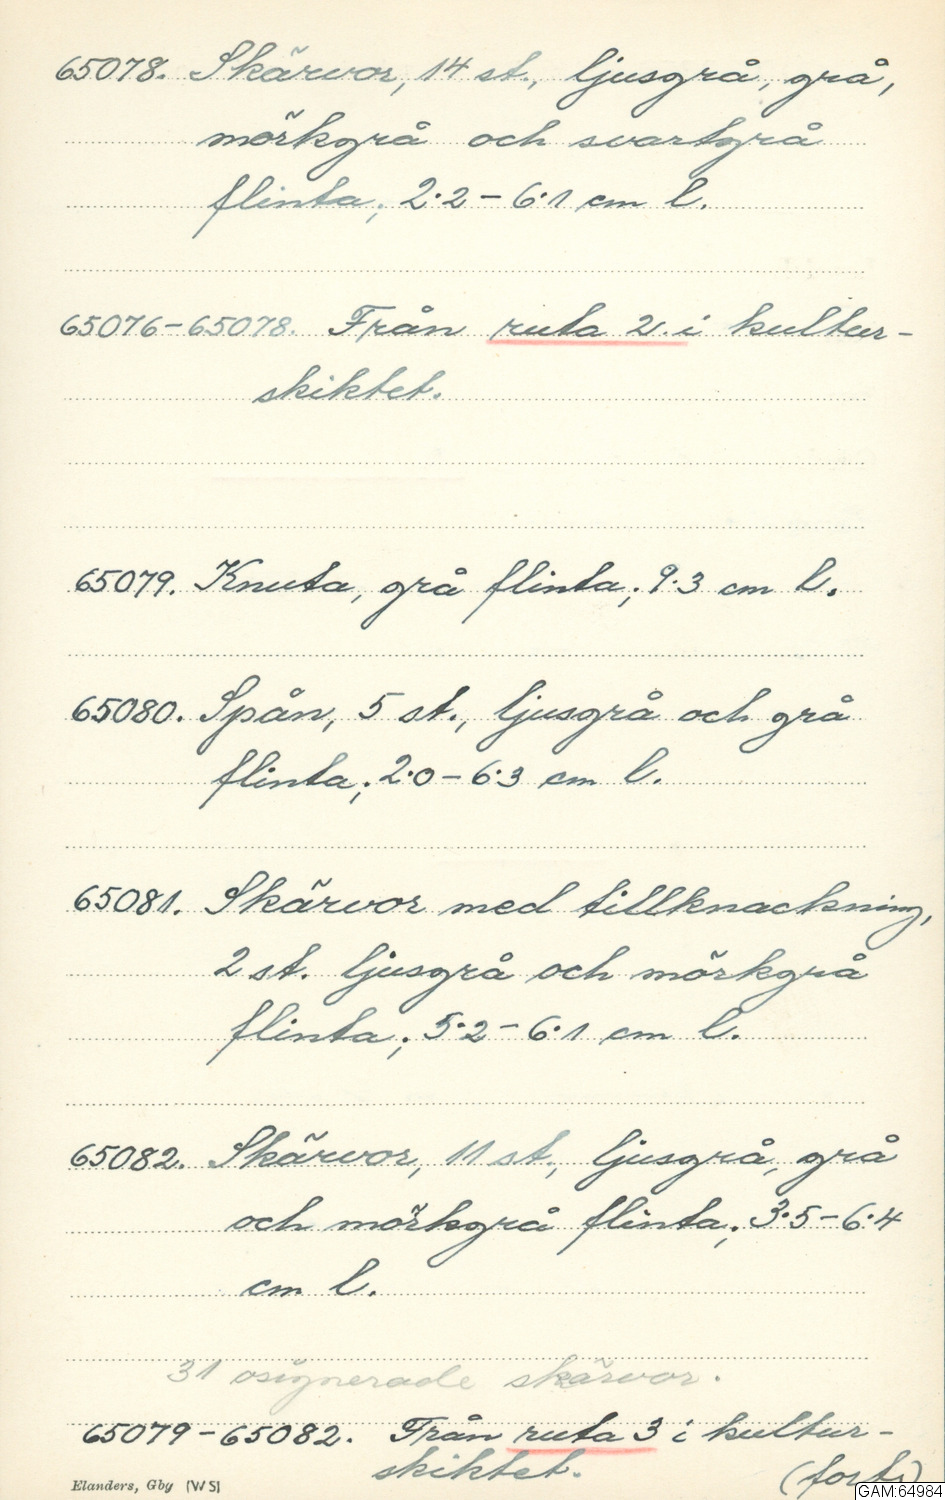 65078. Skärvor, 14 st., ljusgrå, grå,
mörkgrå och svartgrå
flinta; 2·2 – 6·1 cm l.
65076 – 65078. Från ruta 2 i kultur-
skiktet.
65079. Knuta, grå flinta; 9·3 cm l.
65080. Spån, 5 st., ljusgrå och grå
flinta; 2·0 – 6·3 cm l.
65081. Skärvor med tillknackning,
2 st. ljusgrå och mörkgrå
flinta; 5·2 – 6·1 cm l.
65082. Skärvor, 11 st., ljusgrå, grå
och mörkgrå flinta; 3·5 – 6·4
cm l.
31 osignerade skärvor.
65079 – 65082. Från ruta 3 i kultur-
skiktet.
(forts)
Elanders, Gby (WS)
GAM:64984